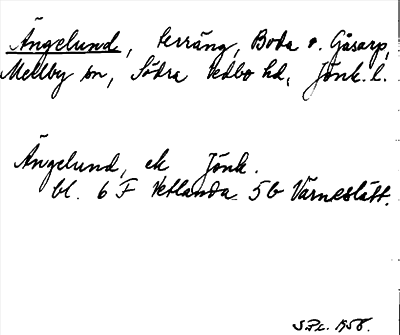 Ängelund, terräng, Boda o. Gåsarp,
Mellby sn, Södra Vedbo hd, Jönk. l.
Ängelund, ek Jönk.
bl. 6 F Vetlanda 5 b Värneslätt.
1958.